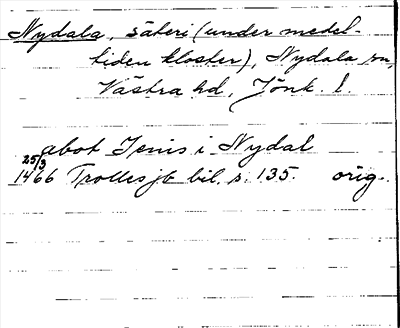 Nydala, säteri (under medel-
tiden kloster), Nydala sn,
Västra hd, Jönk. l.
abot Jenis i Nydal
25/3
1466 Trolles jb bil. s. 135. orig.